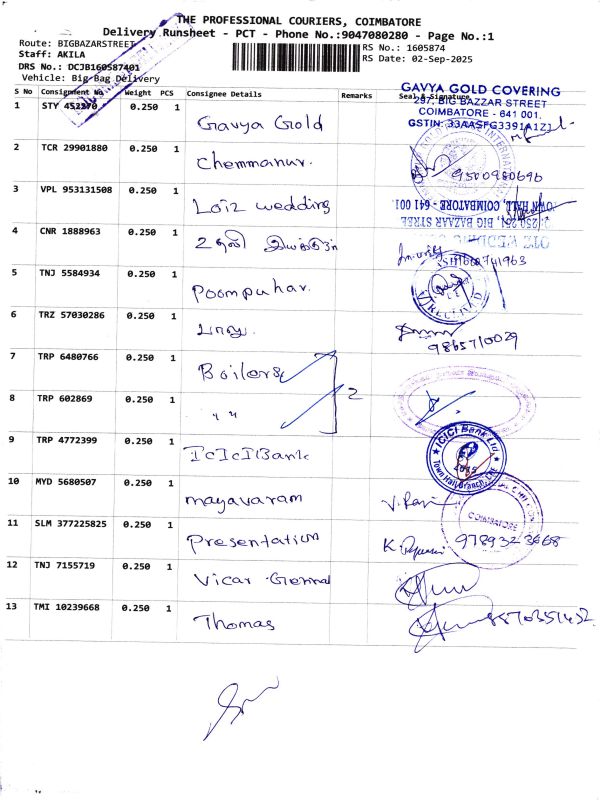 THE PROFESSIONAL COURIERS, COIMBATORE
Delivery Runsheet - PCT - Phone No.:9047080280 - Page No.:1
Route: BIGBAZARSTREET
Staff: AKILA
DRS No.: DCJB160587401
Vehicle: Big Bag Delivery
RS No.: 1605874
RS Date: 02-Sep-2025
S No Consignment No Weight PCS Consignee Details Remarks Seal & Signature
GAVYA GOLD COVERING
297, BIG BAZZAR STREET
COIMBATORE - 641 001.
GSTIN: 33AASFG3391A1Z1
1 STY 452270 0.250 1 Gavya Gold
2 TCR 29901880 0.250 1 Chemmanur. 9500980696
3 VPL 953131508 0.250 1 Loiz wedding
TOWN HALL, COIMBATORE - 641 001.
250,261, BIG BAZAAR STREE
4 CNR 1888963 0.250 1
5 TNJ 5584934 0.250 1 Poompuhar.
RECEIVED
6 TRZ 57030286 0.250 1 9865710029
7 TRP 6480766 0.250 1 Boilers
2
8 TRP 602869 0.250 1 " "
9 TRP 4772399 0.250 1 ICICI Bank
ICICI Bank Ltd.
Town Hall Branch, CBE
10 MYD 5680507 0.250 1 mayavaram V. Ravi
11 SLM 377225825 0.250 1 Presentation K. 9789323668
COIMBATORE
12 TNJ 7155719 0.250 1 Vicar General
13 TMI 10239668 0.250 1 Thomas 8870351432